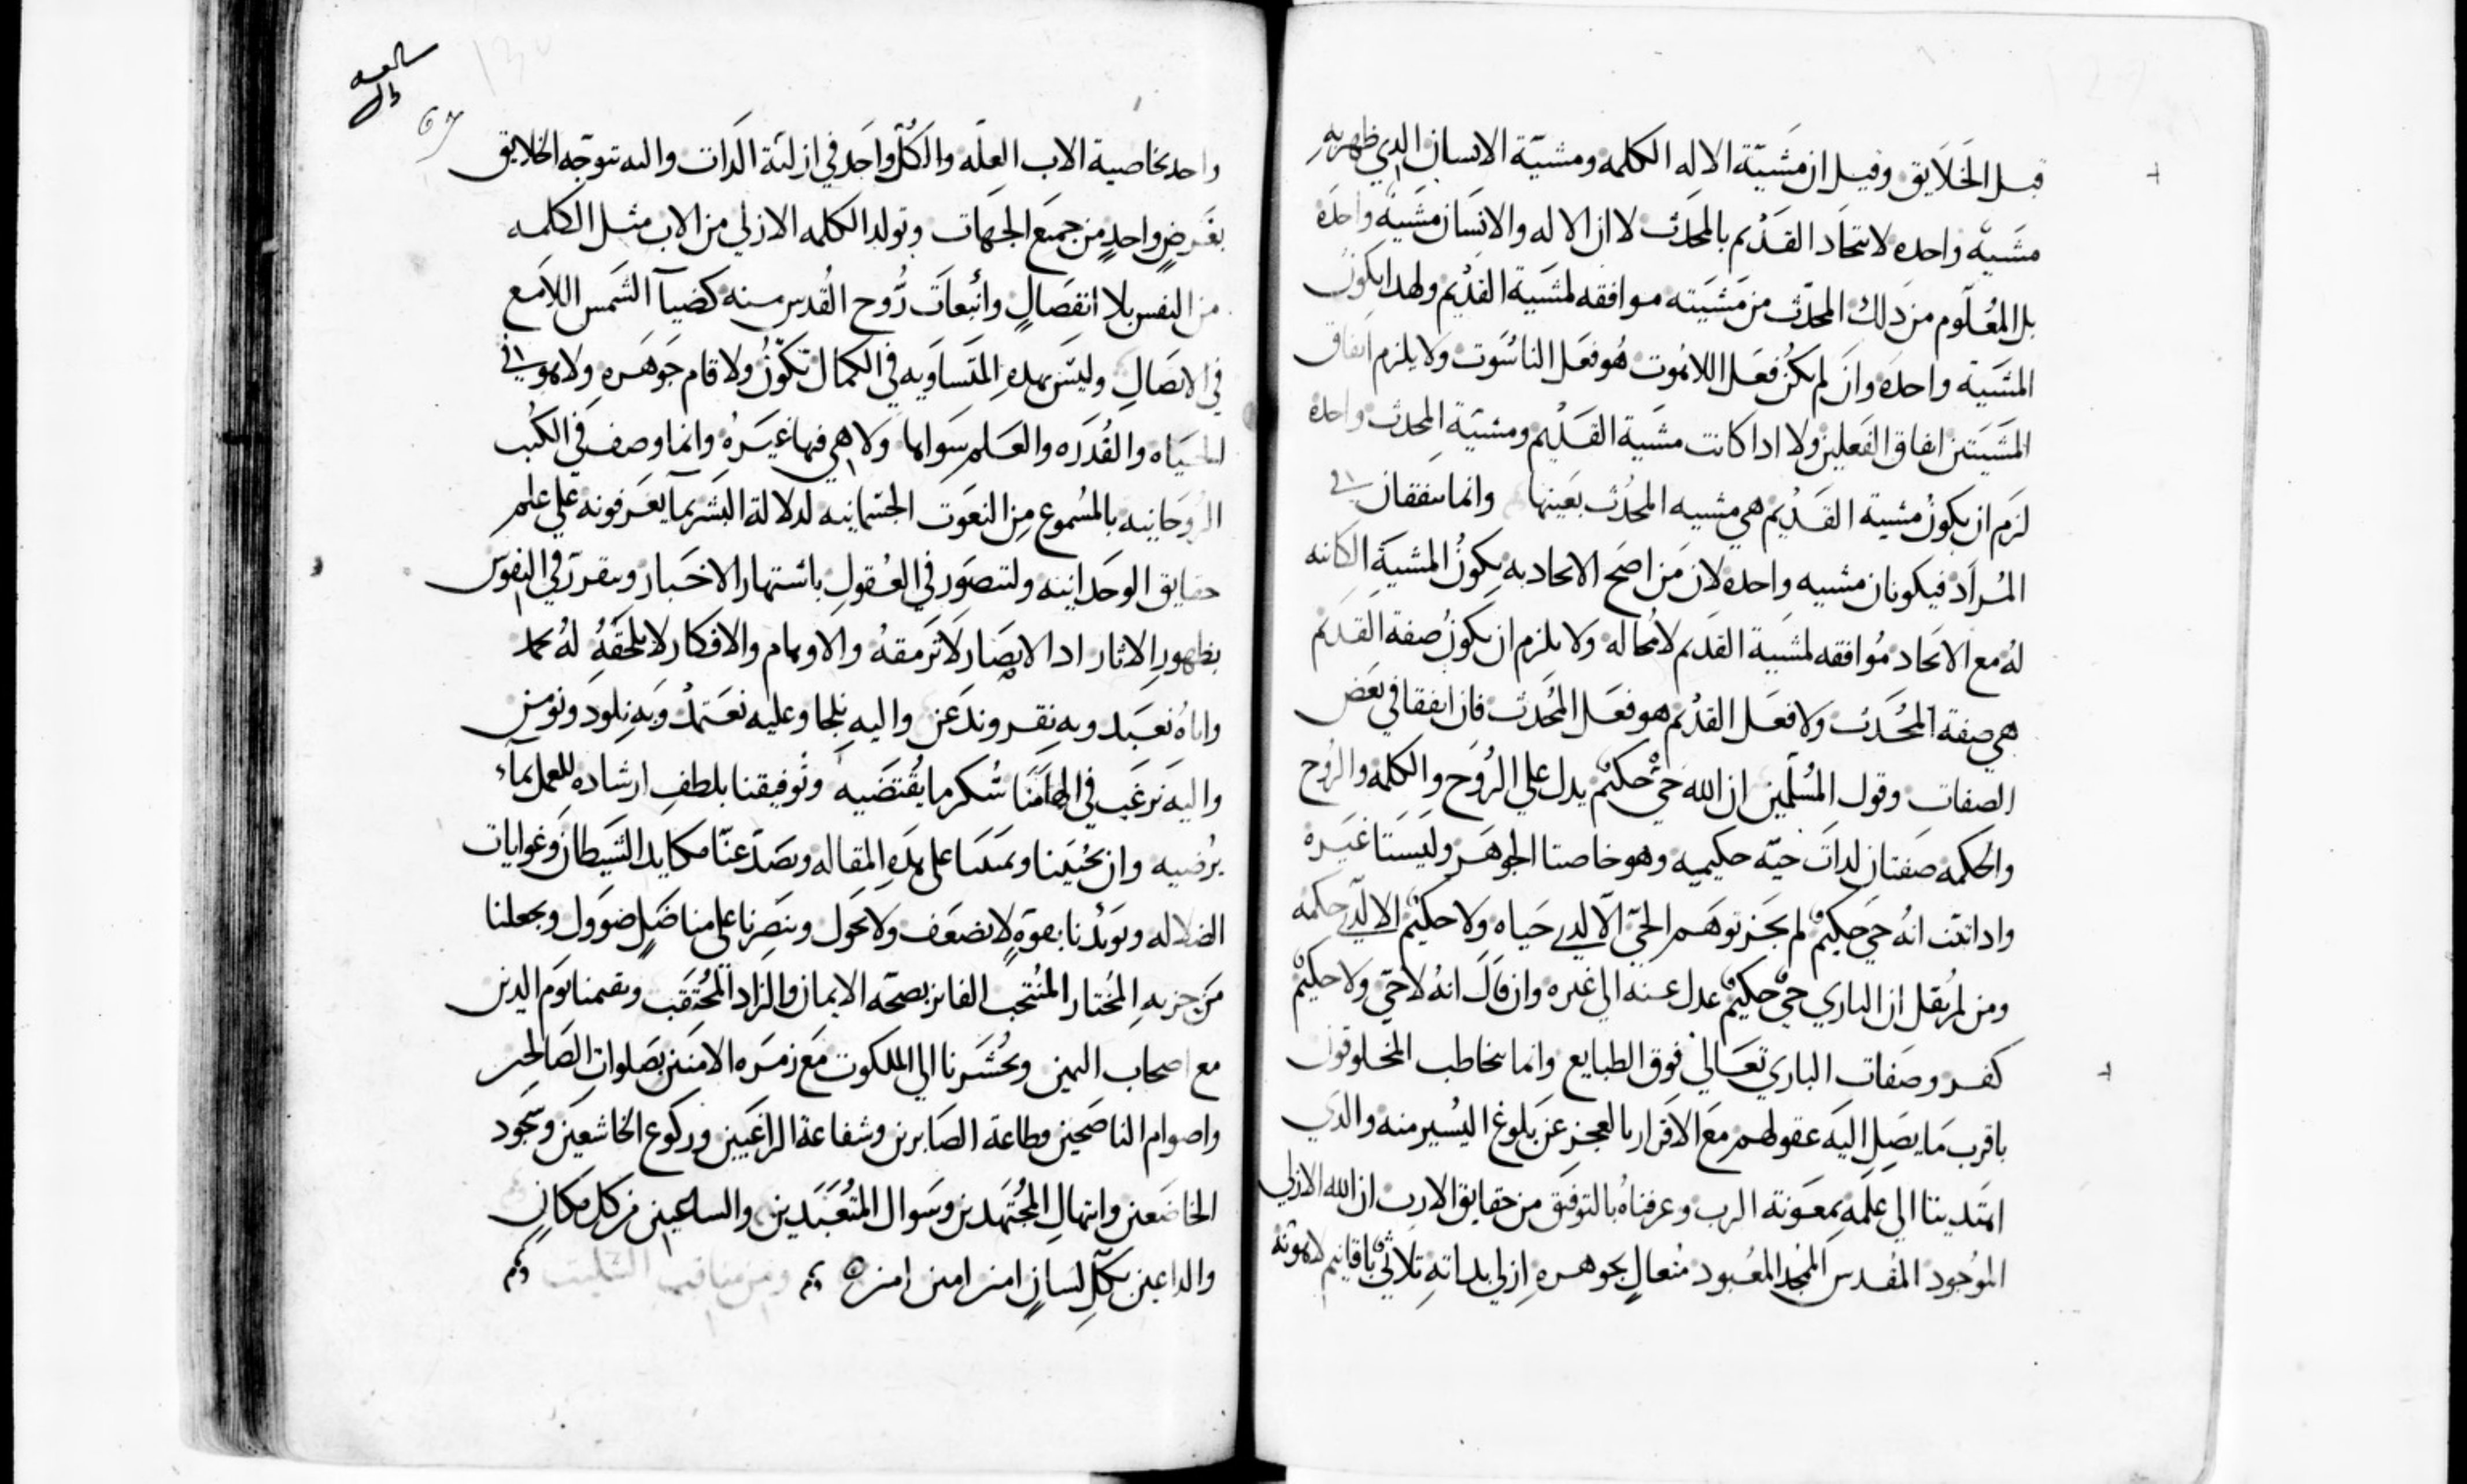 قبل الخلايق وقيل ان مشيّة الاله الكلمه ومشيّة الانسان الدي ظهر به
مشيه واحده لاتحاد القديم بالمحدث لا ان الاله والانسان مشيه واحده
بل المعلوم من دلك المحدث من مشيته موافقه لمشية القديم ولهدا يكون
المشية واحده وان لم يكن فعل اللاهوت هو فعل الناسوت ولا يلزم اتفاق
المشيتين اتفاق الفعلين ولا ادا كانت مشية القديم ومشيّة المحدث واحده
لزم ان يكون مشية القديم هي مشيه المحدث بعينها وانما يتفقان في
المراد فيكونان مشيه واحده لان من اصح الاتحاد به يكون المشية الكاينه
له مع الاتحاد موافقه لمشية القديم لا محاله ولا يلزم ان يكون صفة القديم
هي صفة المحدث ولا فعل القديم هو فعل المحدث فان اتفقا في بعض
الصفات وقول المسلمين ان الله حي حكيم يدل على الروح والكلمه والروح
والحكمه صفتان لدات حيّه حكيميه وهو خاصتا الجوهر وليستا غيره
وادا ثبت انه حي حكيم لم يجز توهم الحي الا لدي حياه ولا حكيم الا لدي حكمه
ومن لم يقل ان الباري حي حكيم عدل عنه الى غيره وان قال انه لا حي ولا حكيم
كفر وصفات الباري تعالي فوق الطبايع وانما يخاطب المخلوقون
باقرب ما يصل اليه عقولهم مع الاقرار بالعجز عن بلوغ اليسير منه والدي
اهتدينا الى علمه بمعونة الرب وعرفناه بالتوفيق من حقايق الارب ان الله الازلي
الموجود المقدس الممجد المعبود متعالٍ بجوهره ازلي بداته ثلاثي باقانيم لاهوته
67
واحد بخاصية الاب العلّه والكل واحد في ازلية الدات واليه تتوجه الخلايق
بغرض واحد من جميع الجهات وتولد الكلمه الازلي من الاب مثل الكلمه
من النفس بلا انفصال وانبعات روح القدس منه كضيآ الشمس اللامع
في الاتصال وليس بهده المتساويه في الكمال تكوّن ولا قام جوهره ولا هو في
الحياه والقدره والعلم سواها ولا هي فيها غيره وانما وصف في الكتب
الروحانيه بالمسموع من النعوت الجسمانيه لدلالة البشر بما يعرفونه علي علم
حقايق الوحدانيه ولتتصور في العقول باشتهار الاخبار ويتقرر في النفوس
بظهور الاثار اد الابصار لا ترمقه والاوهام والافكار لا تلحقه له نحمد
واياه نعبد وبه نقر وندعن واليه نلجا وعليه نعتمد وبه نلود ونومن
واليه نرغب في الهامنا شكر ما يقتضيه وتوفيقنا بلطف ارشاده للعمل بماء
يرضيه وان يحيينا ويميتنا على هده المقاله ويصد عنّا مكايد الشيطان وغوايات
الضلاله ويويدنا بقوةٍ لا تضعف ولا تحول وينصرنا على مناضل ضوول ويجعلنا
من حزبه المختار المنتجب الفايز بصحّه الايمان والزاد المحتقب ويقيمنا يوم الدين
مع اصحاب اليمين ويحشرنا الى الملكوت مع زمره الامنين بصلوات الصالحين
واصوام الناصحين وطاعة الصابرين وشفاعة الراغبين وركوع الخاشعين وسجود
الخاضعين وابتهال المجتهدين وسوال المتعبدين والساعين من كل مكان
والداعين بكل لسان امين امين امين